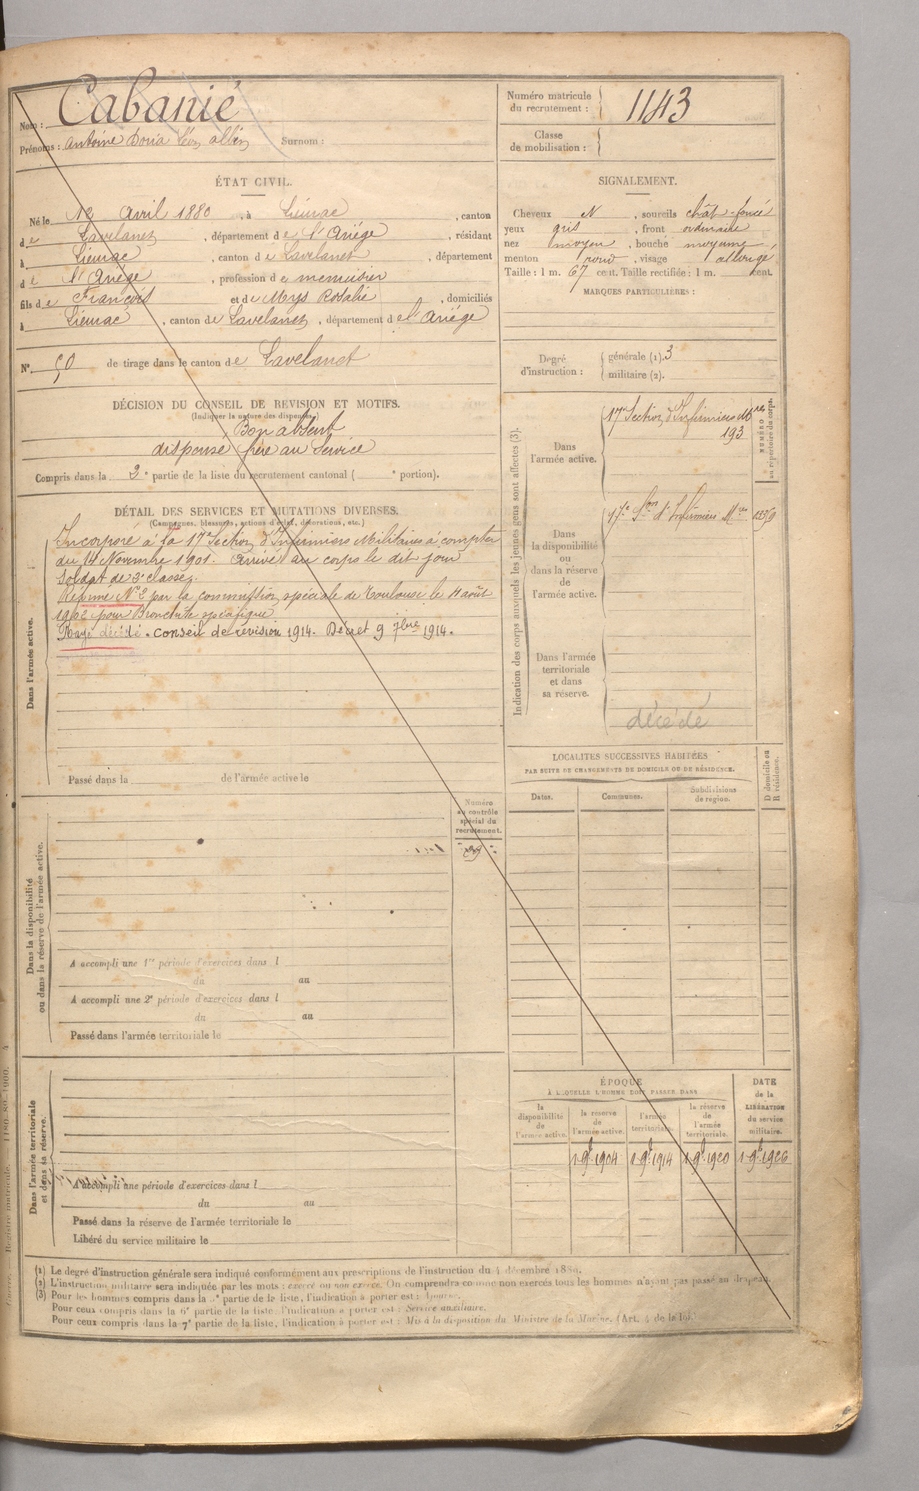 Nom : Cabanié
Prénoms : Antoine Doria Léon Albin Surnom :
Numéro matricule du recrutement : 1143
Classe de mobilisation :
ÉTAT CIVIL.
Né le 12 Avril 1880, à Lieurac, canton
de Lavelanet, département de l'Ariège, résidant
à Lieurac, canton de Lavelanet, département
de l'Ariège, profession de menuisier
fils de François et de Mys Rosalie, domiciliés
à Lieurac, canton de Lavelanet, département de l'Ariège
N° 50 de tirage dans le canton de Lavelanet
DÉCISION DU CONSEIL DE REVISION ET MOTIFS.
(Indiquer la nature des dispenses.)
Bon absent
dispensé frère au service
Compris dans la 2e partie de la liste du recrutement cantonal ( e portion).
SIGNALEMENT.
Cheveux N, sourcils chât-foncé
yeux gris, front ordinaire
nez moyen, bouche moyenne,
menton rond, visage allongé
Taille : 1 m. 67 cent. Taille rectifiée : 1 m. cent.
MARQUES PARTICULIÈRES :
Degré d'instruction : générale (1). 3
militaire (2).
DÉTAIL DES SERVICES ET MUTATIONS DIVERSES.
(Campagnes, blessures, actions d'éclat, décorations, etc.)
Dans l'armée active.
Incorporé à la 17e Section d'Infirmiers Militaires à compter
du 14 Novembre 1901. Arrivé au corps le dit jour
Soldat de 2e classe.
Réformé N° 2 par la commission spéciale de Toulouse le 11 août
1902 pour Bronchite spécifique
Rayé décédé. Conseil de révision 1914. Décret 9 7bre 1914.
Passé dans la de l'armée active le
Indication des corps auxquels les jeunes gens sont affectés (3).
NUMÉRO au répertoire du corps.
Dans l'armée active.
17e Section d'Infirmiers Mres
193
Dans la disponibilité ou dans la réserve de l'armée active.
17e Son d'Infirmiers Mres
Dans l'armée territoriale et dans sa réserve.
décédé
LOCALITÉS SUCCESSIVES HABITÉES
PAR SUITE DE CHANGEMENTS DE DOMICILE OU DE RÉSIDENCE.
Dates. Communes. Subdivisions de région. D domicile ou R résidence.
Numéro au contrôle spécial du recrutement.
Dans la disponibilité ou dans la réserve de l'armée active.
A accompli une 1re période d'exercices dans l
du au
A accompli une 2e période d'exercices dans l
du au
Passé dans l'armée territoriale le
Dans l'armée territoriale et dans sa réserve.
A accompli une période d'exercices dans l
du au
Passé dans la réserve de l'armée territoriale le
Libéré du service militaire le
ÉPOQUE
À LAQUELLE L'HOMME DOIT PASSER DANS
la disponibilité de l'armée active.
la réserve de l'armée active.
l'armée territoriale.
la réserve de l'armée territoriale.
DATE de la LIBÉRATION du service militaire.
1 9bre 1904 1 9bre 1914 1 9bre 1920 1 9bre 1926
(1) Le degré d'instruction générale sera indiqué conformément aux prescriptions de l'instruction du 4 décembre 1889.
(2) L'instruction militaire sera indiquée par les mots : exercé ou non exercé. On comprendra comme non exercés tous les hommes n'ayant pas passé au drapeau.
(3) Pour les hommes compris dans la e partie de la liste, l'indication à porter est : Ajourné.
Pour ceux compris dans la 6e partie de la liste, l'indication à porter est : Service auxiliaire.
Pour ceux compris dans la 7e partie de la liste, l'indication à porter est : Mis à la disposition du Ministre de la Marine. (Art. 4 de la loi.)
Registre matricule.